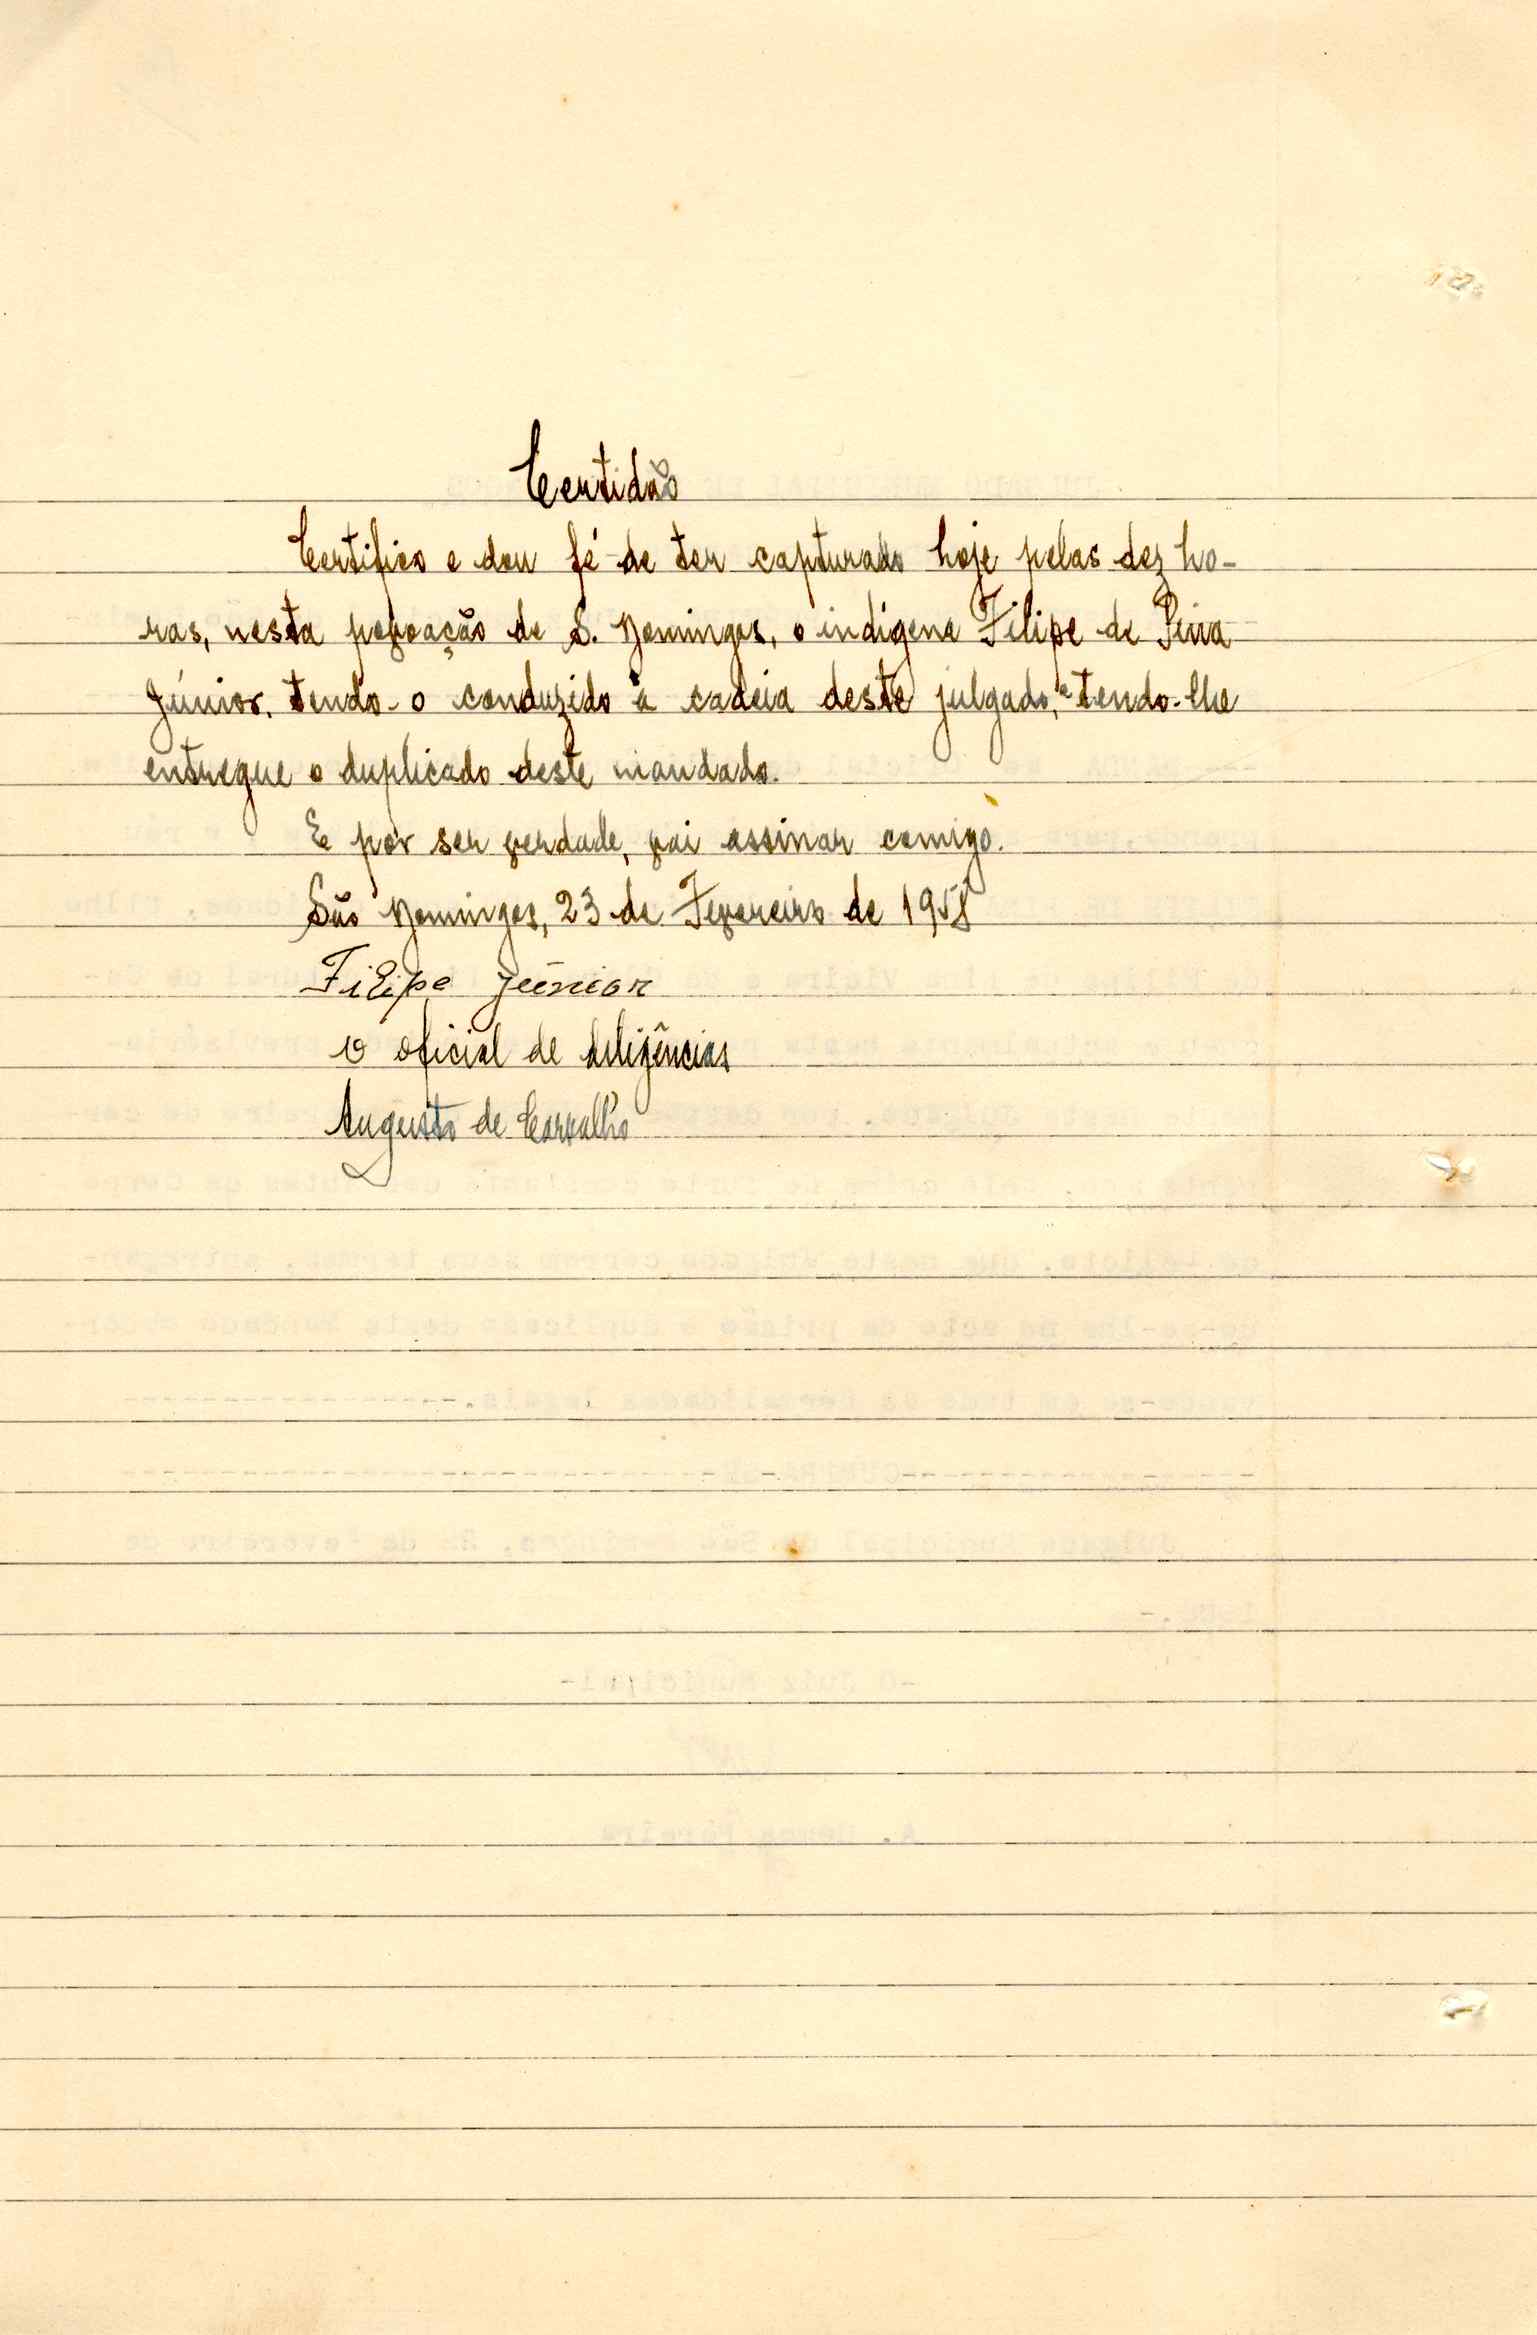 Certidão
Certifico e dou fé de ter capturado hoje pelas dez ho-
ras, nesta povoação de S. Domingos, o indígena Filipe de Pina
Júnior, tendo-o conduzido à cadeia deste julgado, e tendo-lhe
entregue o duplicado deste mandado.
E por ser verdade, vai assinar comigo.
São Domingos, 23 de Fevereiro de 1958
Filipe Júnior
O oficial de diligências
Augusto de Carvalho